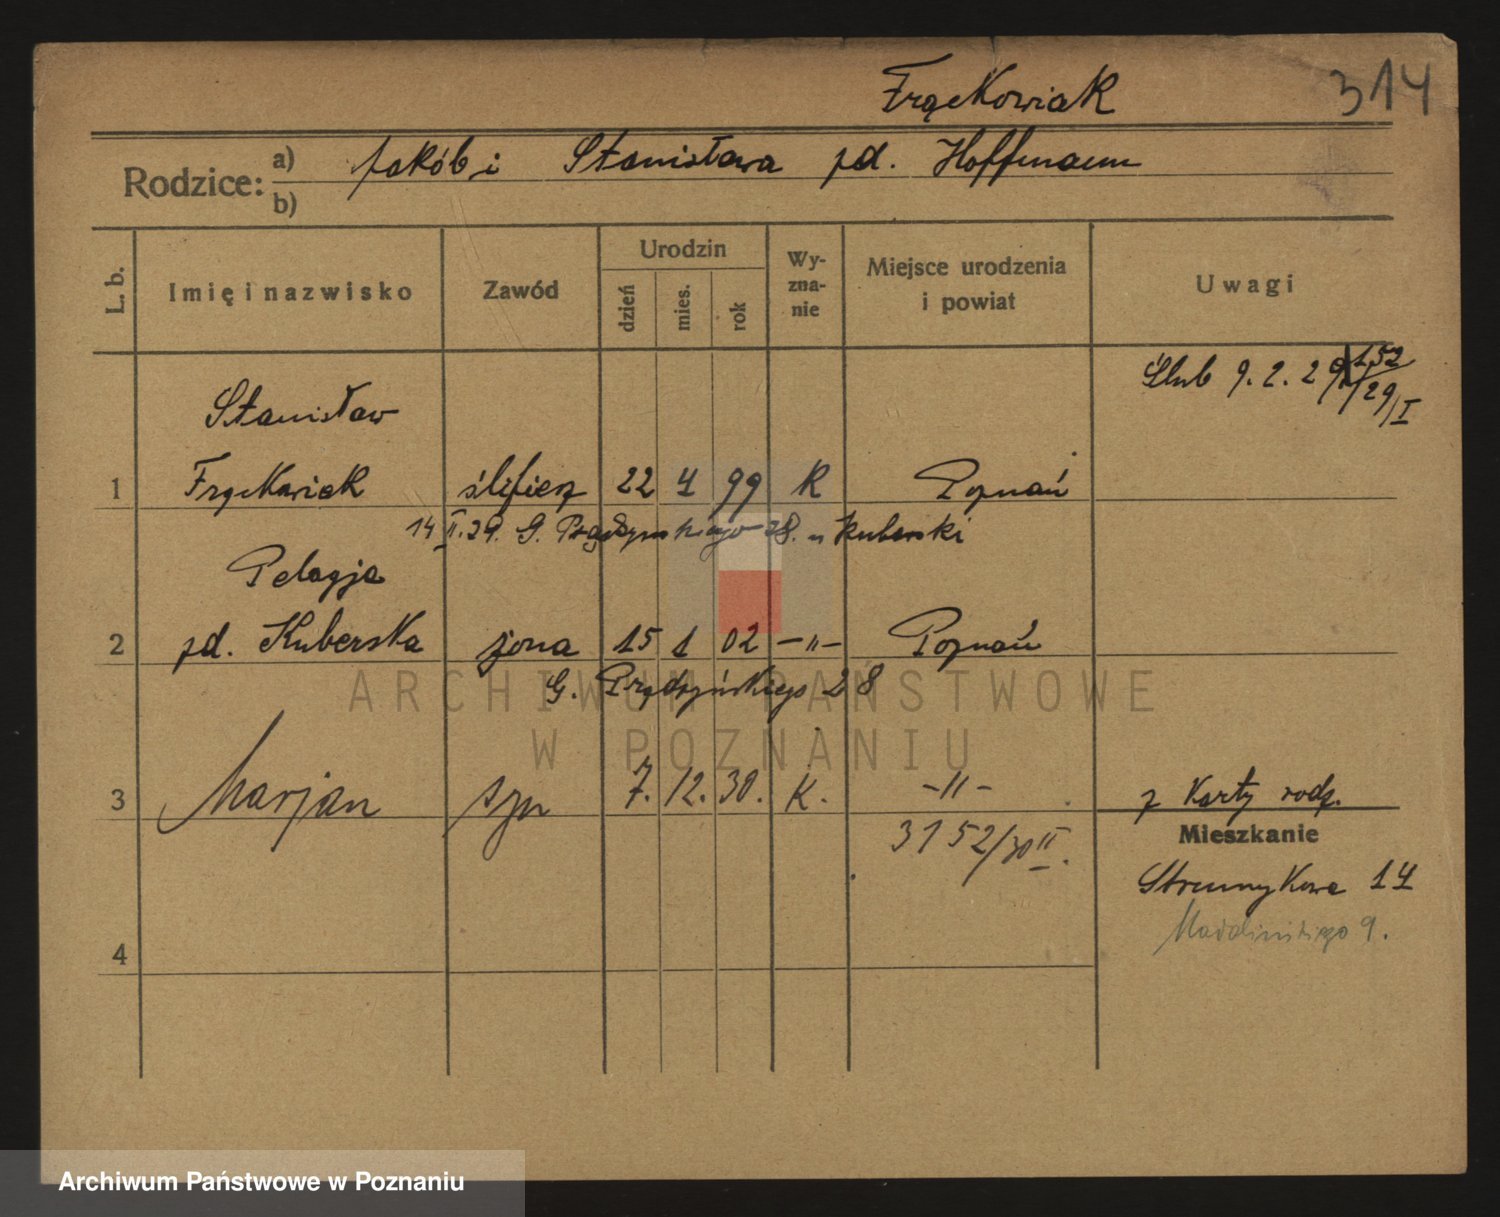 Frąckowiak 314
Rodzice: a) Jakób i Stanisława zd. Hoffmann
b)
L. b. Imię i nazwisko Zawód Urodzin dzień mies. rok Wy-zna-nie Miejsce urodzenia i powiat Uwagi
Ślub 9. 2. 29 152/29/I
Stanisław
1 Frąckowiak ślifierz 22 4 99 K Poznań
14 II. 29. G. Prądzyńskiego 28. u Kuberski
Pelagja
2 zd. Kuberska żona 15 1 02 -"- Poznań
G. Prądzyńskiego 28
3 Marjan syn 7. 12. 30. K. -"- z Karty rodz.
3152/30 II.
Mieszkanie
Strumykowa 14
Madalińskiego 9.
4
ARCHIWUM PAŃSTWOWE
W POZNANIU
Archiwum Państwowe w Poznaniu